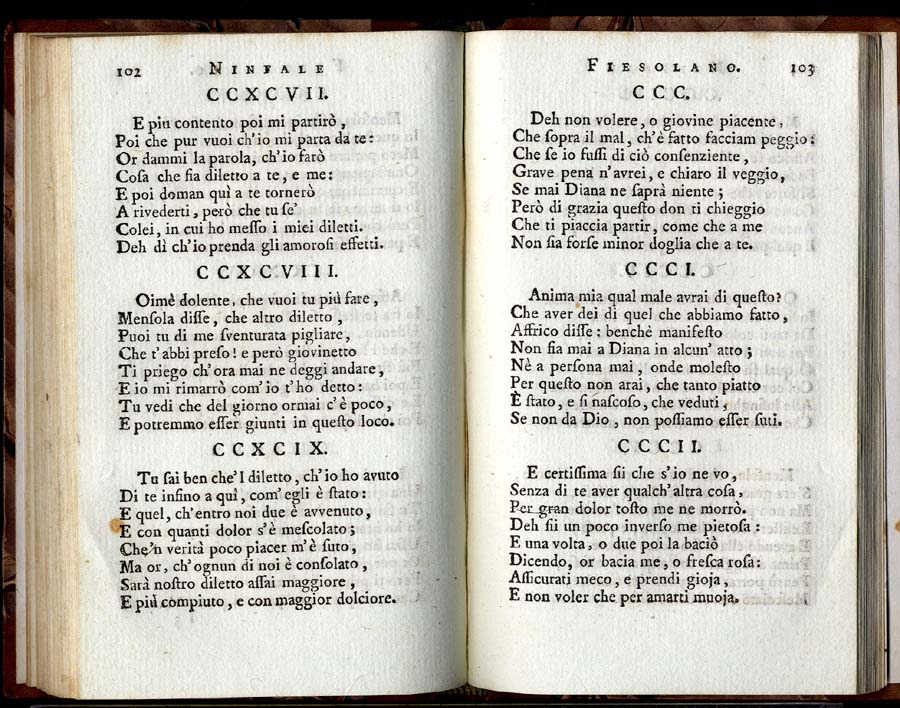 102 NINFALE
CCXCVII.
E piu contento poi mi partirò,
Poi che pur vuoi ch'io mi parta da te:
Or dammi la parola, ch'io farò
Cosa che ſia diletto a te, e me:
E poi doman quì a te tornerò
A rivederti, però che tu ſe'
Colei, in cui ho meſſo i miei diletti.
Deh dì ch'io prenda gli amoroſi effetti.
CCXCVIII.
Oimè dolente, che vuoi tu più fare,
Menſola diſſe, che altro diletto,
Puoi tu di me ſventurata pigliare,
Che t'abbi preſo! e però giovinetto
Ti priego ch'ora mai ne deggi andare,
E io mi rimarrò com'io t'ho detto:
Tu vedi che del giorno ormai c'è poco,
E potremmo eſſer giunti in queſto loco.
CCXCIX.
Tu ſai ben che'l diletto, ch'io ho avuto
Di te inſino a quì, com'egli è ſtato:
E quel, ch'entro noi due è avvenuto,
E con quanti dolor s'è meſcolato;
Che'n verità poco piacer m'è ſuto,
Ma or, ch'ognun di noi è conſolato,
Sarà noſtro diletto aſſai maggiore,
E più compiuto, e con maggior dolciore.
FIESOLANO. 103
CCC.
Deh non volere, o giovine piacente,
Che ſopra il mal, ch'è fatto facciam peggio:
Che ſe io fuſſi di ciò conſenziente,
Grave pena n'avrei, e chiaro il veggio,
Se mai Diana ne ſaprà niente;
Però di grazia queſto don ti chieggio
Che ti piaccia partir, come che a me
Non ſia forſe minor doglia che a te.
CCCI.
Anima mia qual male avrai di queſto?
Che aver dei di quel che abbiamo fatto,
Affrico diſſe: benchè manifeſto
Non ſia mai a Diana in alcun' atto;
Nè a perſona mai, onde moleſto
Per queſto non arai, che tanto piatto
È ſtato, e ſi naſcoſo, che veduti,
Se non da Dio, non poſſiamo eſſer ſuti.
CCCII.
E certiſſima ſii che s'io ne vo,
Senza di te aver qualch'altra coſa,
Per gran dolor toſto me ne morrò.
Deh ſii un poco inverſo me pietoſa:
E una volta, o due poi la baciò
Dicendo, or bacia me, o freſca roſa:
Aſſicurati meco, e prendi gioja,
E non voler che per amarti muoja.